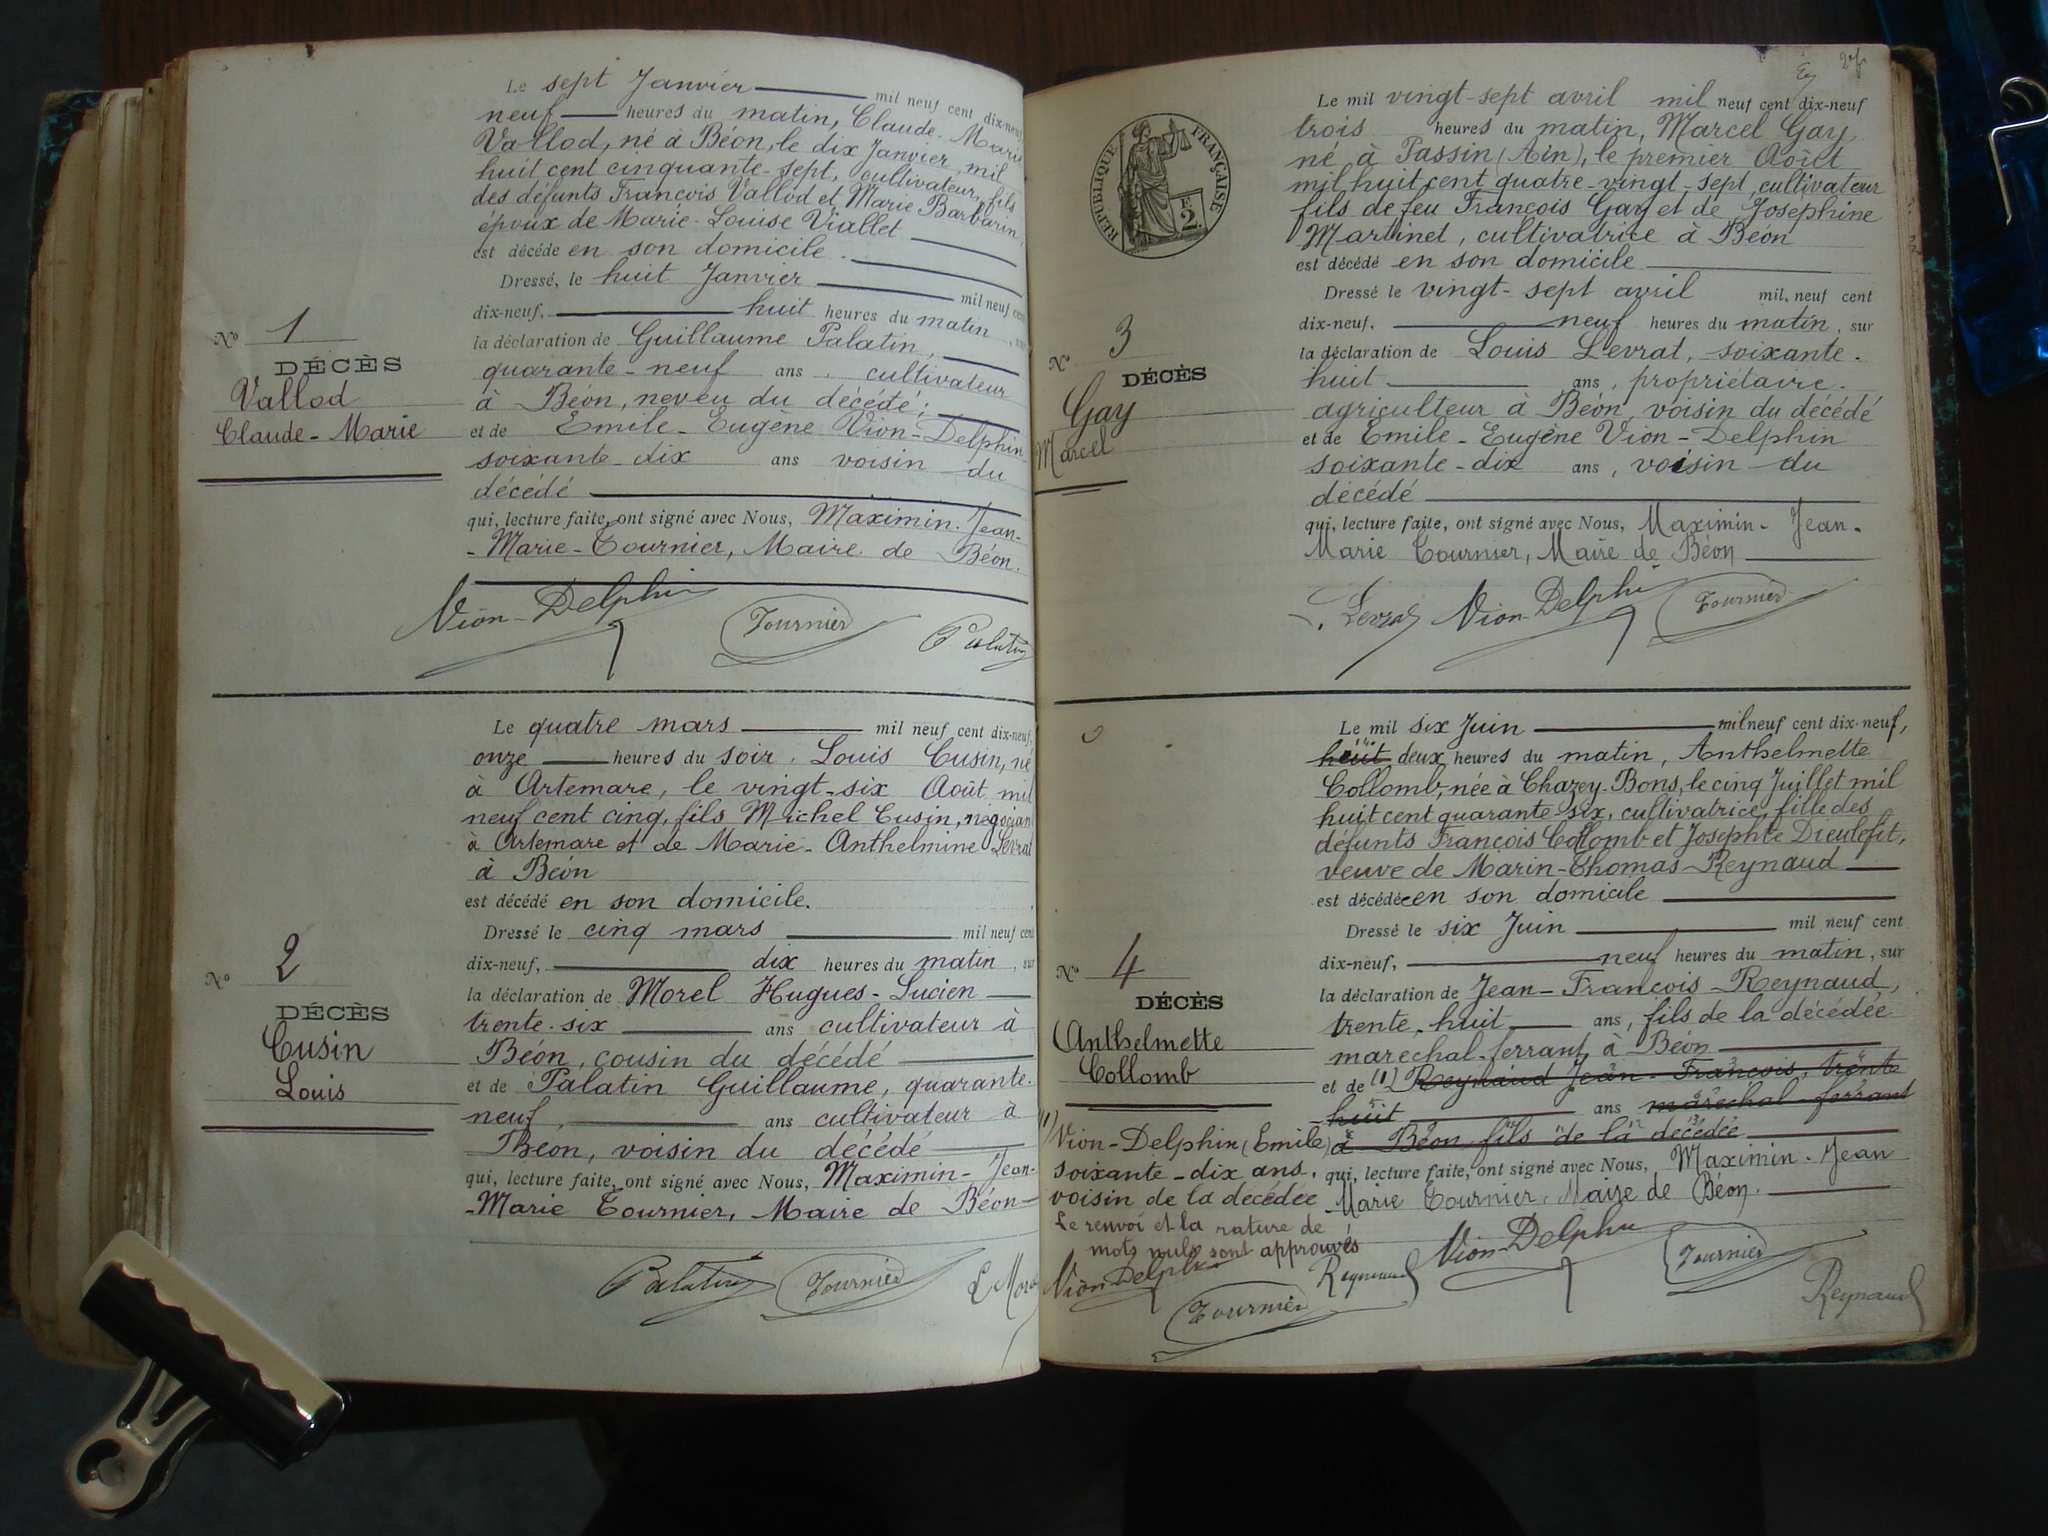 Le sept Janvier mil neuf cent dix-neuf
neuf heures du matin, Claude-Marie
Vallod, né à Béon, le dix Janvier mil
huit cent cinquante-sept, cultivateur, fils
des défunts François Vallod et Marie Barbarin,
époux de Marie-Louise Viallet
est décédé en son domicile.
Dressé, le huit Janvier mil neuf cent
dix-neuf, huit heures du matin, sur
la déclaration de Guillaume Palatin,
quarante-neuf ans, cultivateur
à Béon, neveu du décédé;
et de Emile-Eugène Vion-Delphin
soixante-dix ans voisin du
décédé
qui, lecture faite, ont signé avec Nous, Maximin-Jean-
-Marie-Tournier, Maire de Béon.
Vion-Delphin Tournier Palatin
No 1
DÉCÈS
Vallod
Claude-Marie
Le quatre mars mil neuf cent dix-neuf,
onze heures du soir, Louis Cusin, né
à Artemare, le vingt-six Août mil
neuf cent cinq, fils Michel Cusin, négociant
à Artemare et de Marie-Anthelmine Levrat
à Béon
est décédé en son domicile.
Dressé le cinq mars mil neuf cent
dix-neuf, dix heures du matin, sur
la déclaration de Morel Hugues-Lucien
trente-six ans cultivateur à
Béon, cousin du décédé
et de Palatin Guillaume, quarante-
neuf, ans cultivateur à
Béon, voisin du décédé
qui, lecture faite, ont signé avec Nous, Maximin-Jean-
-Marie Tournier, Maire de Béon
Palatin Tournier L Morel
No 2
DÉCÈS
Cusin
Louis
RÉPUBLIQUE FRANÇAISE
2
Le mil vingt-sept avril mil neuf cent dix-neuf
trois heures du matin, Marcel Gay
né à Passin (Ain), le premier Août
mil huit cent quatre-vingt-sept, cultivateur
fils de feu François Gay et de Josephine
Martinet, cultivatrice à Béon
est décédé en son domicile
Dressé le vingt-sept avril mil neuf cent
dix-neuf, neuf heures du matin, sur
la déclaration de Louis Levrat, soixante-
huit ans, propriétaire-
agriculteur à Béon, voisin du décédé
et de Emile-Eugène Vion-Delphin
soixante-dix ans, voisin du
décédé
qui, lecture faite, ont signé avec Nous, Maximin-Jean-
Marie Tournier, Maire de Béon
Levrat Vion-Delphin Tournier
No 3
DÉCÈS
Gay
Marcel
Le mil six Juin mil neuf cent dix-neuf,
huit deux heures du matin, Anthelmette
Collomb, née à Chazey-Bons, le cinq Juillet mil
huit cent quarante-six, cultivatrice, fille des
défunts François Collomb et Josephte Dieulefit,
veuve de Marin-Thomas-Reynaud
est décédée en son domicile
Dressé le six Juin mil neuf cent
dix-neuf, neuf heures du matin, sur
la déclaration de Jean-François-Reynaud,
trente-huit ans, fils de la décédée
maréchal-ferrant à Béon
et de (1) Reynaud Jean-François, trente
huit ans maréchal-ferrant
à Béon fils de la décédée
qui, lecture faite, ont signé avec Nous, Maximin-Jean
Marie Tournier, Maire de Béon.
Vion-Delphin Tournier Reynaud
No 4
DÉCÈS
Anthelmette
Collomb
(1) Vion-Delphin (Emile)
soixante-dix ans,
voisin de la décédée
Le renvoi et la rature de
mots nuls sont approuvés
Vion-Delphin Tournier Reynaud